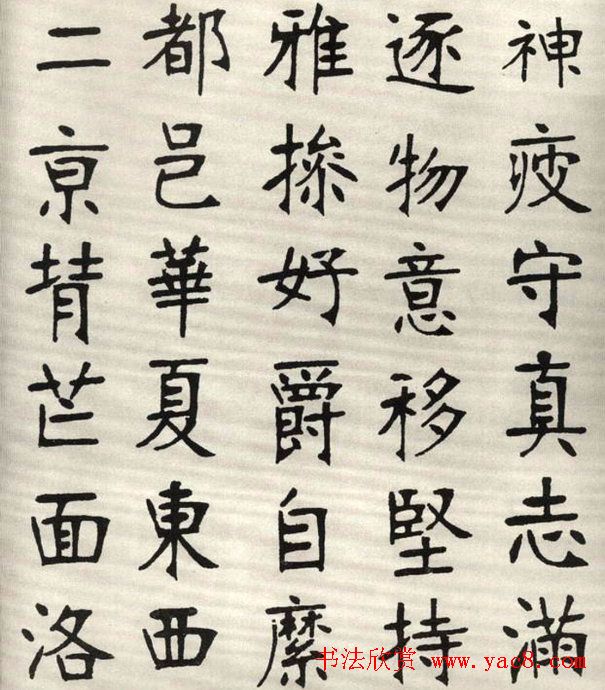 神疲守真志滿
逐物意移堅持
雅操好爵自縻
都邑華夏東西
二亰背芒面洛
书法欣赏 www.yac8.com